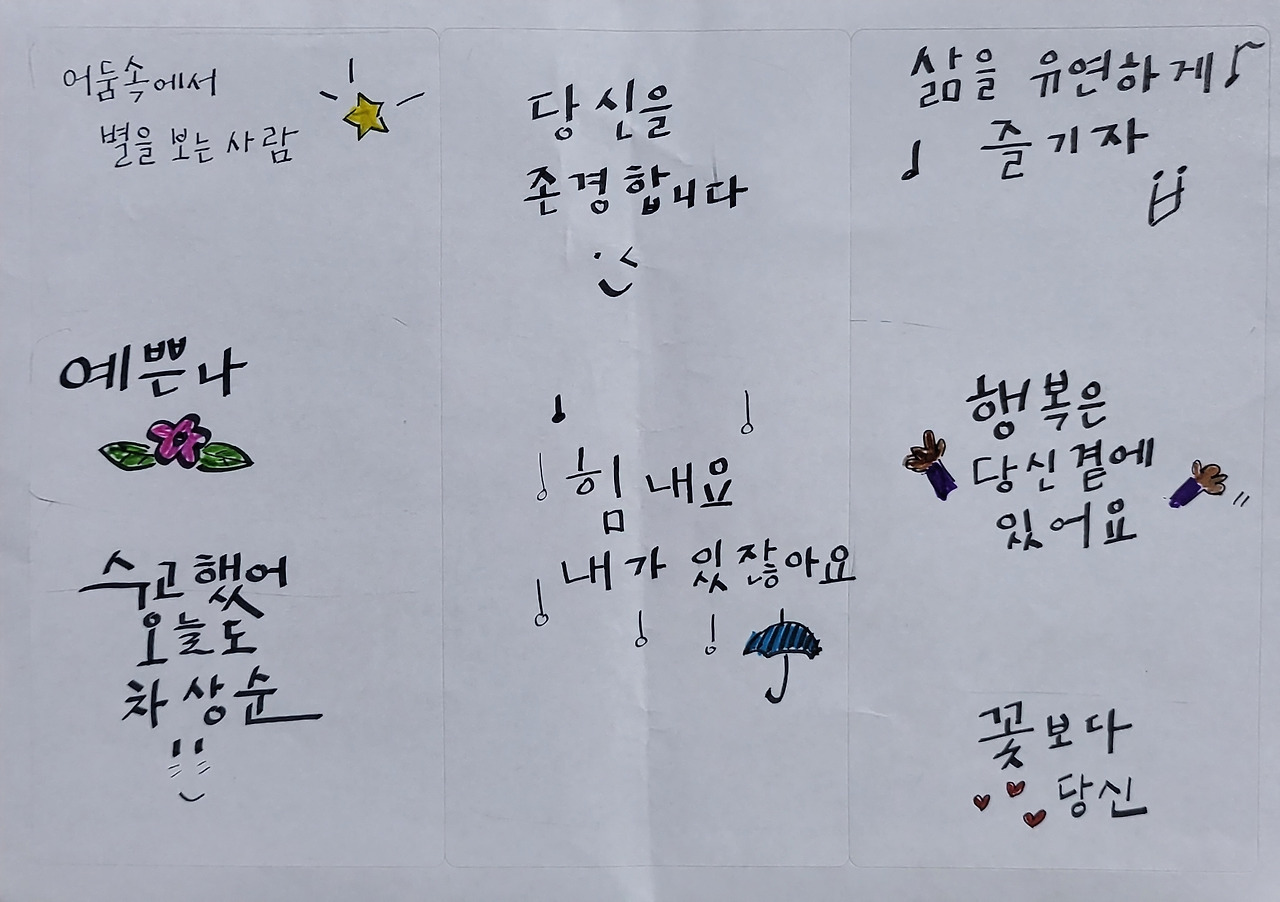 어둠속에서
별을 보는 사람
예쁜 나
수고했어
오늘도
차상순
당신을
존경합니다
힘내요
내가 있잖아요
삶을 유연하게
즐기자
행복은
당신곁에
있어요
꽃보다
당신